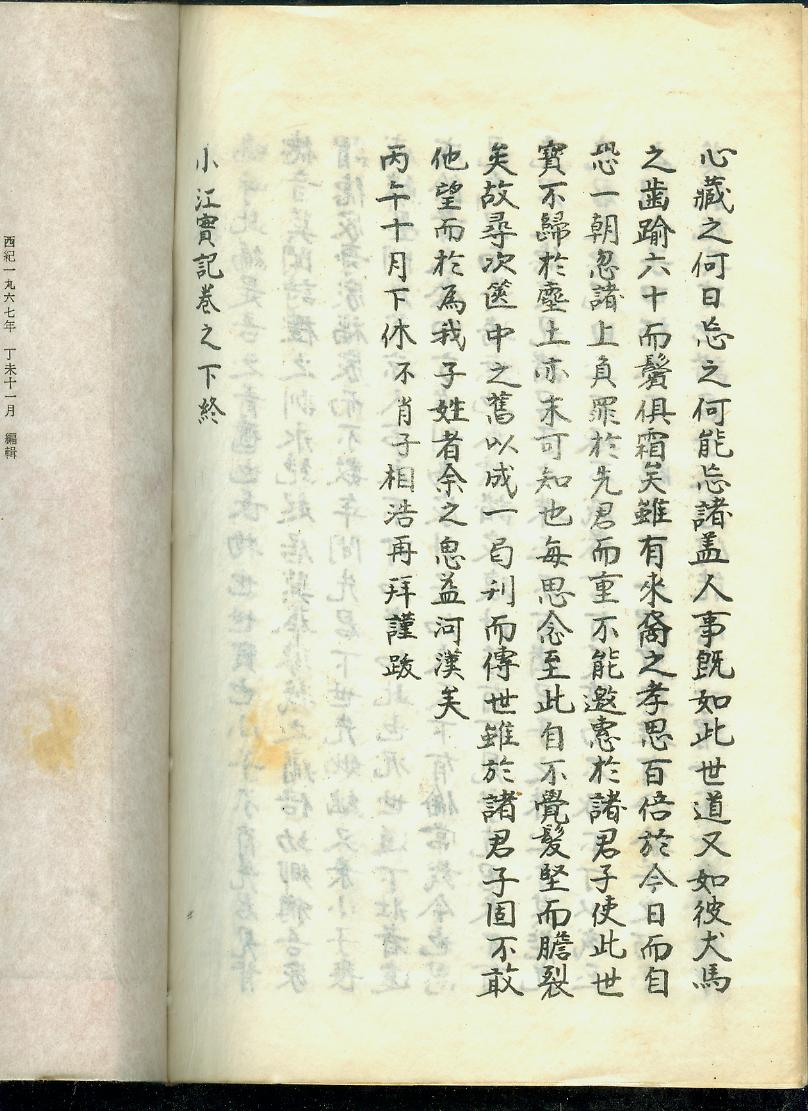 心藏之何日忘之何能忘諸盖人事旣如此世道又如彼犬馬
之齒踰六十而鬢俱霜矣雖有來裔之孝思百倍於今日而自
恐一朝忽諸上負罪於先君而重不能邀惠於諸君子使此世
寶不歸於塵土亦未可知也每思念至此自不覺髮竪而膽裂
矣故尋次篋中之舊以成一局刋而傳世雖於諸君子固不敢
他望而於爲我子姓者余之恩益河漢矣
丙午十月下休不肖子相浩再拜謹跋
小江實記卷之下終
西紀一九六七年 丁未十一月 編輯